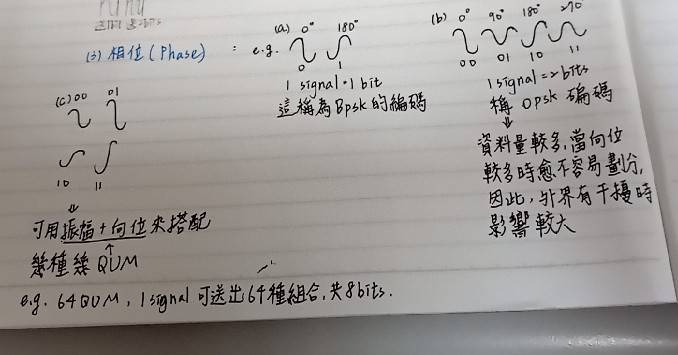 (3) 相位 (Phase) : e.g.
(a) 0° 180°
0 1
1 signal = 1 bit
這稱為 Bpsk 的編碼
(b) 0° 90° 180° 270
00 01 10 11
1 signal = 2 bits
稱 Qpsk 編碼
資料量較多,當向位
較多時愈不容易劃分,
因此,外界有干擾時
影響較大
(c) 00 01
10 11
可用振幅+向位來搭配
幾種幾 QUM
e.g. 64QUM, 1 signal 可送出64種組合,共8bits.